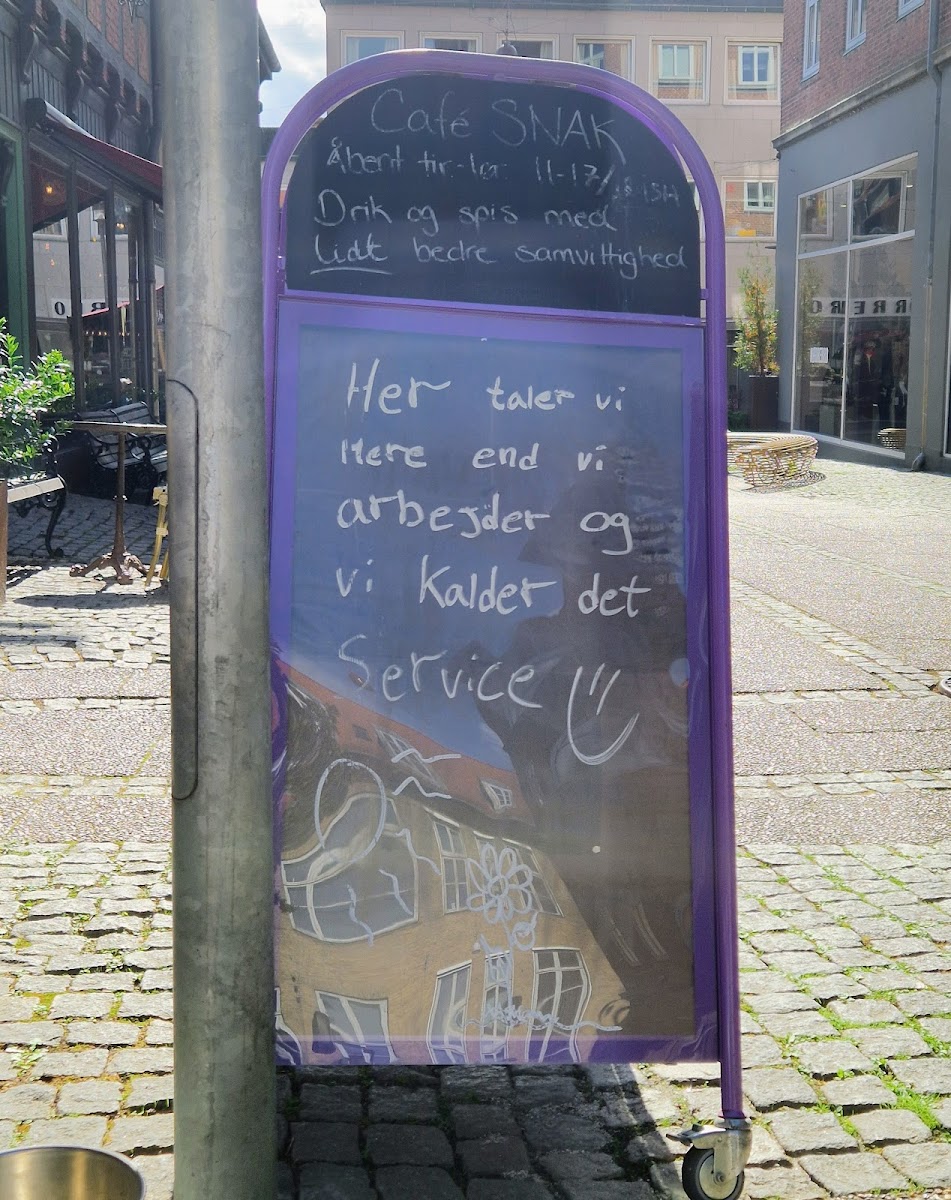 Café SNAK
Åbent tir.-lør. 11-17/
Drik og spis med
lidt bedre samvittighed
Her taler vi
mere end vi
arbejder og
vi kalder det
Service